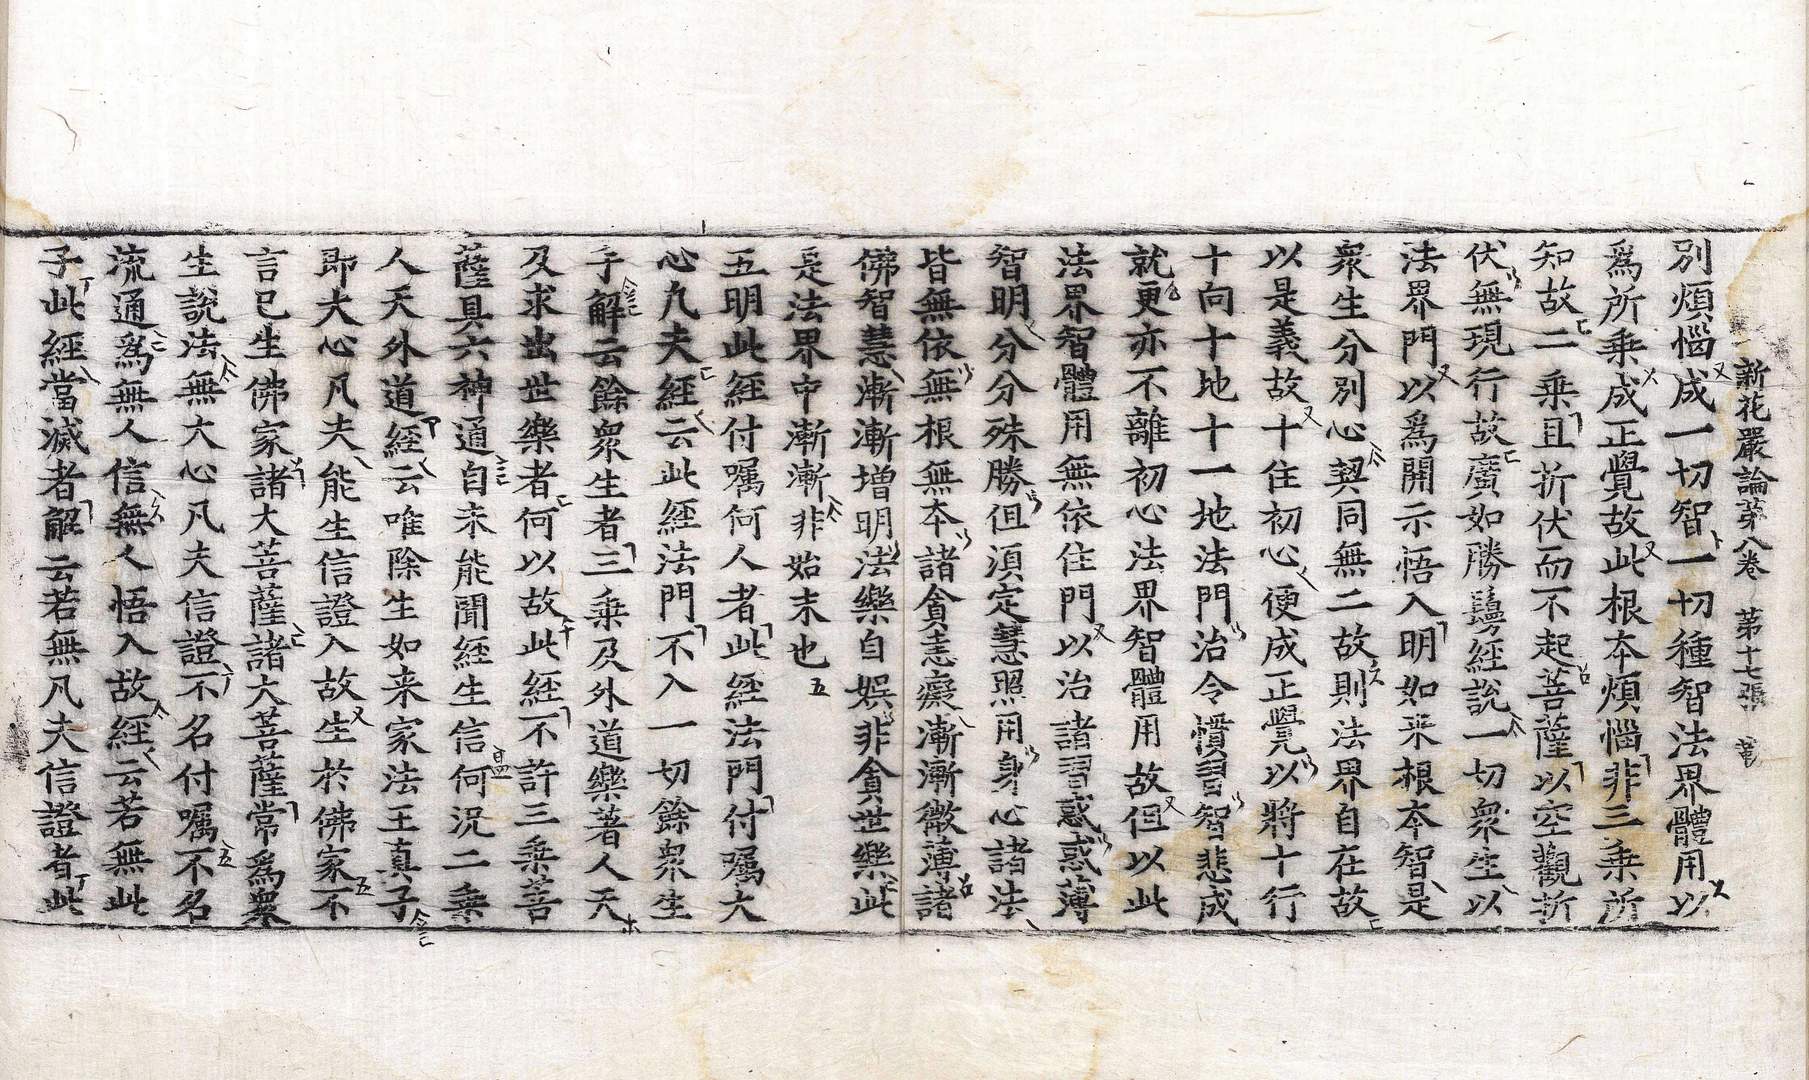 新花嚴論第八卷 第十七張
別煩惱成一切智一切種智法界體用以
爲所乗成正覺故此根本煩惱非三乗所
知故二乗且折伏而不起菩薩以空觀折
伏無現行故廣如勝鬘經說一切衆生以
法界門以爲開示悟入明如来根本智是
衆生分別心契同無二故則法界自在故
以是義故十住初心便成正覺以將十行
十向十地十一地法門治令慣習智悲成
就更亦不離初心法界智體用故但以此
法界智體用無依住門以治諸習惑惑薄
智明分分殊勝但須定慧照用身心諸法
皆無依無根無本諸貪恚癡漸漸微薄諸
佛智慧漸漸增明法樂自娛非貪世樂此
是法界中漸漸非始末也
五明此經付囑何人者此經法門付囑大
心凡夫經云此經法門不入一切餘衆生
手解云餘衆生者三乗及外道樂著人天
及求出世樂者何以故此經不許三乗菩
薩具六神通自未能聞經生信何況二乗
人天外道經云唯除生如来家法王真子
即大心凡夫能生信證入故生於佛家不
言已生佛家諸大菩薩諸大菩薩常爲衆
生說法無大心凡夫信證不名付囑不名
流通爲無人信無人悟入故經云若無此
子此經當滅者解云若無凡夫信證者此